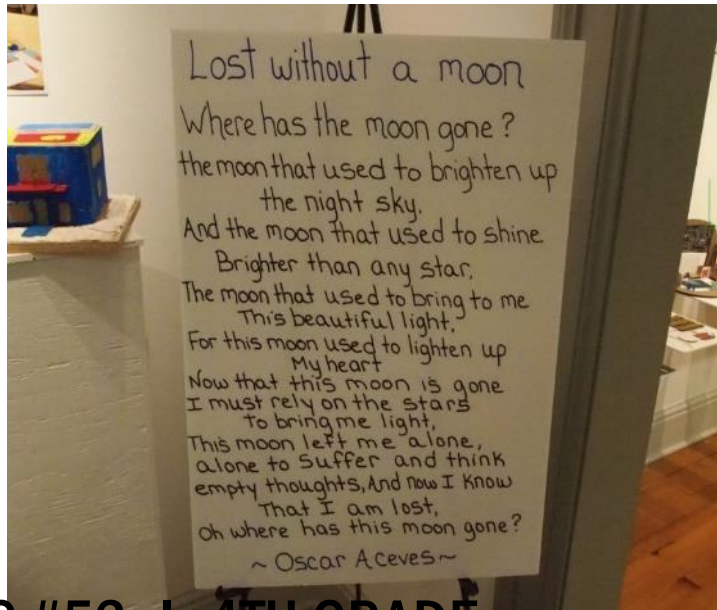 Lost without a moon
Where has the moon gone?
the moon that used to brighten up
the night sky.
And the moon that used to shine
Brighter than any star.
The moon that used to bring to me
This beautiful light.
For this moon used to lighten up
My heart
Now that this moon is gone
I must rely on the stars
to bring me light,
This moon left me alone,
alone to Suffer and think
empty thoughts, And now I know
That I am lost,
Oh where has this moon gone?
~ Oscar Aceves ~